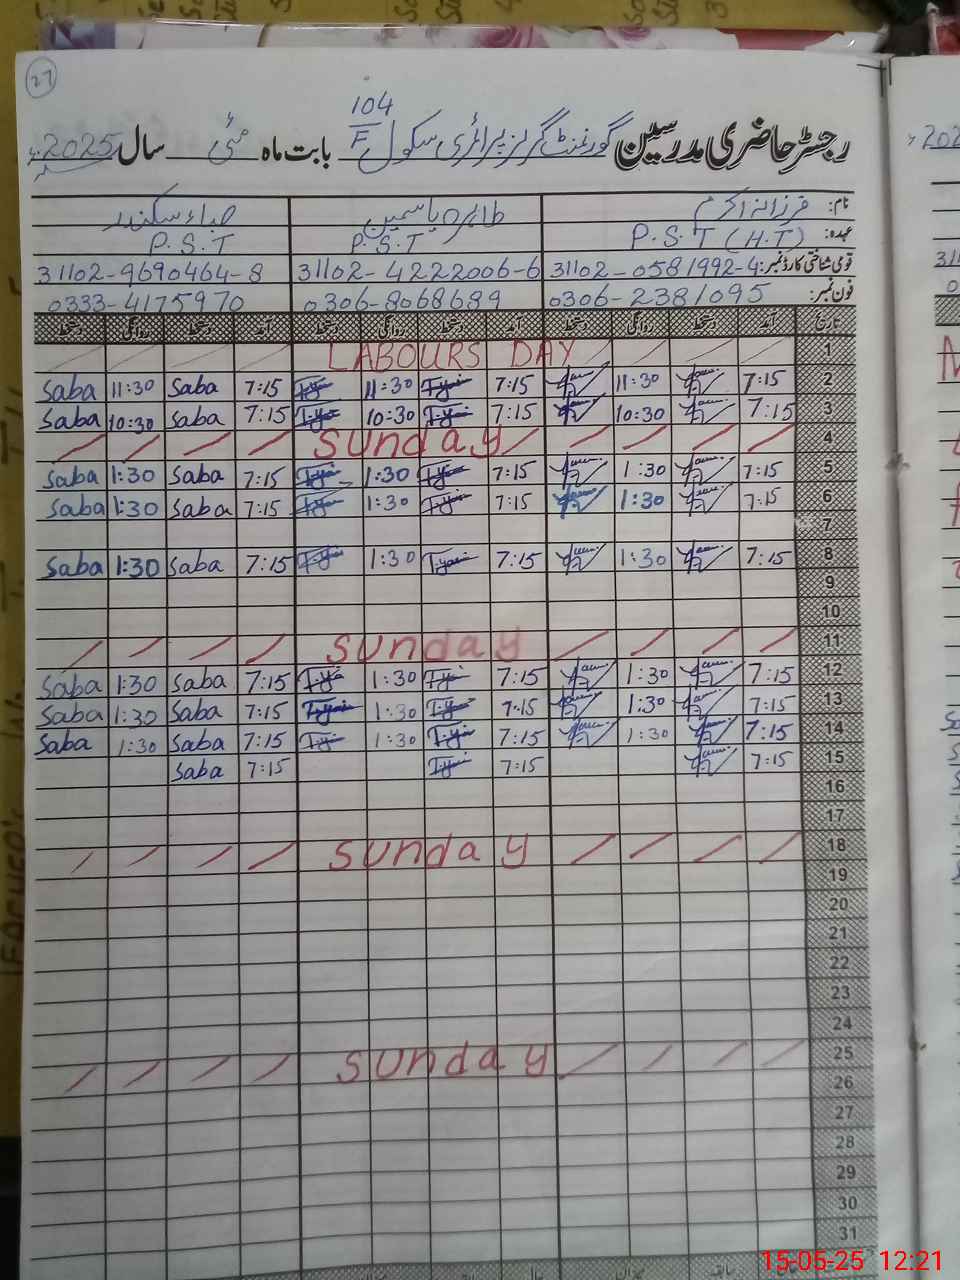 27
104
F
رجسٹر حاضری مدرسین گورنمنٹ گرلز پرائمری سکول بابت ماہ مئی سال 2025
نام: فرزانہ اکرم طاہرہ یاسمین صباء سکندر
عہدہ: P.S.T (H.T) P.S.T P.S.T
قومی شناختی کارڈ نمبر: 31102-0581992-4 31102-4222006-6 31102-9690464-8
فون نمبر: 0306-2381095 0306-8068689 0333-4175970
تاریخ آمد دستخط روانگی دستخط آمد دستخط روانگی دستخط آمد دستخط روانگی دستخط
LABOURS DAY 1
Saba 11:30 Saba 7:15 11:30 7:15 11:30 7:15 2
Saba 10:30 Saba 7:15 10:30 7:15 10:30 7:15 3
Sunday 4
Saba 1:30 Saba 7:15 1:30 7:15 1:30 7:15 5
Saba 1:30 Saba 7:15 1:30 7:15 1:30 7:15 6
7
Saba 1:30 Saba 7:15 1:30 7:15 1:30 7:15 8
9
10
Sunday 11
Saba 1:30 Saba 7:15 1:30 7:15 1:30 7:15 12
Saba 1:30 Saba 7:15 1:30 7:15 1:30 7:15 13
Saba 1:30 Saba 7:15 1:30 7:15 1:30 7:15 14
Saba 7:15 7:15 7:15 15
16
17
Sunday 18
19
20
21
22
23
24
Sunday 25
26
27
28
29
30
31
15-05-25 12:21